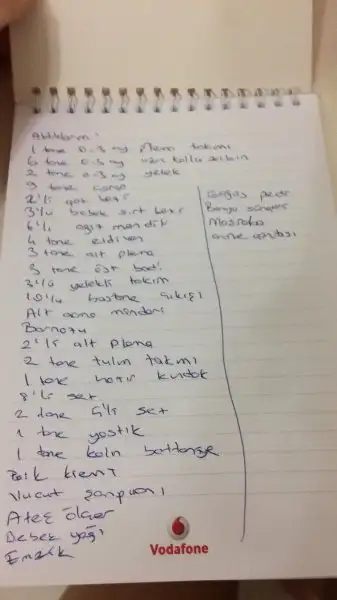 Aldıklarım:
1 tane 0-3 ay takımı
6 tane 0-3 ay uzun kollu zıbın
2 tane 0-3 ay yelek
9 tane çorap
2'li
3'lü bebek sırt bezi
6'lı ağız mendili
4 tane eldiven
3 tane alt
3 tane üst
3'lü yelekli takım
10'lu hastane çıkışı
Alt açma
Bornozu
2'li alt
2 tane tulum takımı
1 tane hazır kundak
8'li set
2 tane 5'li set
1 tane yastık
1 tane kalın battaniye
Pişik kremi
Vücut şampuanı
Ateş ölçer
Bebek yağı
Emzik
Göğüs pedi
Banyo süngeri
anne çantası
Vodafone